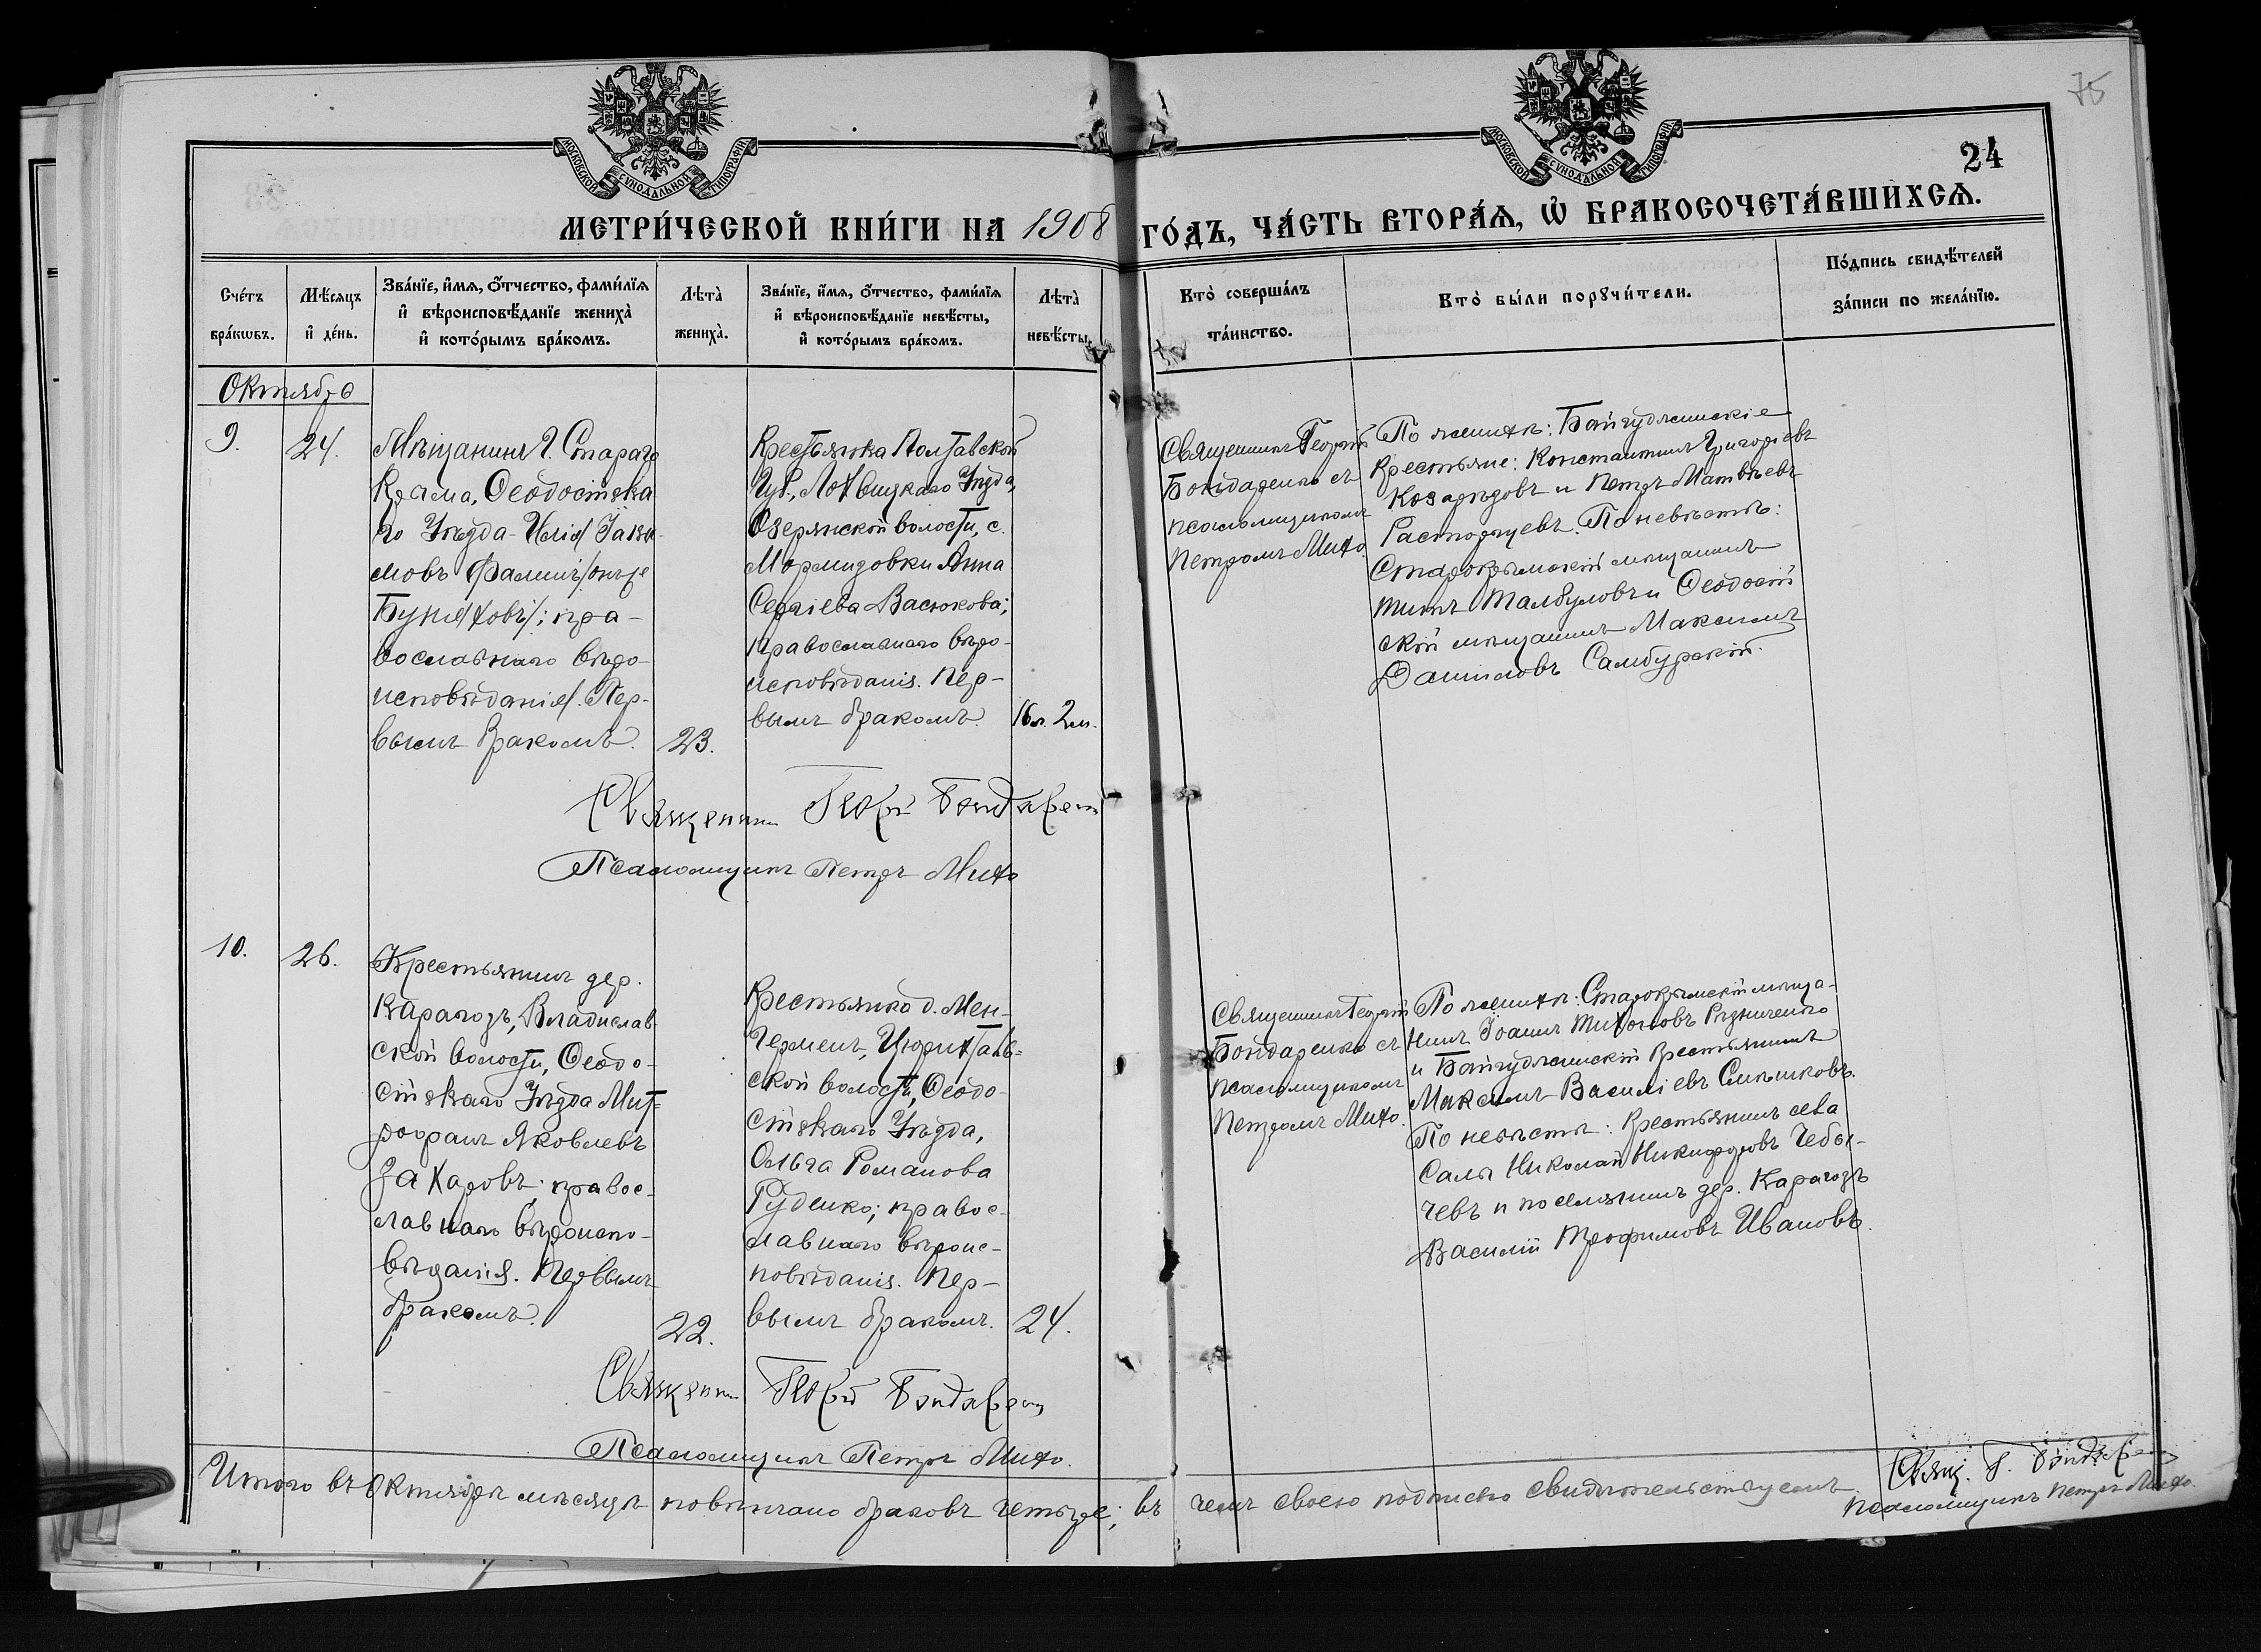 75
24
МОСКОВСКОЙ СѴНОДАЛЬНОЙ ТИПОГРАФІИ
МОСКОВСКОЙ СѴНОДАЛЬНОЙ ТИПОГРАФІИ
МЕТРИ́ЧЕСКОЙ КНИ́ГИ НА 1908 ГО́ДЪ, ЧА́СТЬ ВТОРА́Ѧ, Ѽ БРАКОСОЧЕТА́ВШИХСѦ.
Сче́тъ
бра́кѡвъ.
Мѣ́сяцъ
и҆ де́нь.
Зва́нїе, и҆́мѧ, ѻ҆́тчество, фами́лїѧ
и҆ вѣроисповѣ́данїе жениха̀
и҆ кото́рымъ бра́комъ.
Лѣта̀
жениха̀.
Зва́нїе, и҆́мѧ, ѻ҆́тчество, фами́лїѧ
и҆ вѣроисповѣ́данїе невѣ́сты,
и҆ кото́рымъ бра́комъ.
Лѣта̀
невѣ́сты.
Кто̀ соверша́лъ
та́инство.
Кто̀ бы́ли порꙋчи́тели.
По́дпись свидѣ́телей
за́писи по жела́нїю.
Октябрь
9.
24.
Мѣщанинъ г. Стараго
Крыма, Ѳеодосійска-
го Уѣзда-Илія Іаки-
мовъ
Буня
ховъ/; пра-
вославнаго вѣро-
исповѣданія. Пер-
вымъ бракомъ.
23.
Крестьянка Полтавской
Губ., Лохвицкаго Уѣзда,
Озерянской волости, с.
Анна
Сергіева Васюкова;
православнаго вѣро-
исповѣданія. Пер-
вымъ бракомъ.
16 л. 2 м.
Священникъ Георгій
Бондаренко съ
псаломщикомъ
Петромъ Михо.
По женихѣ: Байгудженскіе
крестьяне: Константинъ Григорьевъ
и Петръ Матвѣевъ
Расторгуевъ. По невѣстѣ:
Старокрымскій мѣщанинъ
и Ѳеодосій-
скій мѣщанинъ Максимъ
Даниловъ Самбурскій.
Священникъ Георгій Бондаренко
Псаломщикъ Петръ Михо
10.
26.
Крестьянинъ дер.
Карагозъ, Владислав-
ской волости, Ѳеодо-
сійскаго Уѣзда Мит-
рофанъ Яковлевъ
Захаровъ; правос-
лавнаго вѣроиспо-
вѣданія. Первымъ
бракомъ.
22.
Крестьянка д. Мен-
Чермень, Цюрихталь-
ской волости, Ѳеодо-
сійскаго Уѣзда,
Ольга Романова
Руденко; правос-
лавнаго вѣроис-
повѣданія. Пер-
вымъ бракомъ.
24.
Священникъ Георгій
Бондаренко съ
псаломщикомъ
Петромъ Михо.
По женихѣ: Старокрымскій мѣща-
нинъ Іоаннъ Тихоновъ Рѣзниченко
и Байгудженскій крестьянинъ
Максимъ Василіевъ
По невѣстѣ: крестьянинъ села
Салы Николай Никифоровъ Чебы-
чевъ и поселянинъ дер. Карагозъ
Василій Трофимовъ Ивановъ.
Священникъ Георгій Бондаренко
Псаломщикъ Петръ Михо.
Итого въ Октябрѣ мѣсяцѣ повѣнчано браковъ четыре; въ чемъ своею подписью свидѣтельствуемъ.
Свящ. Г. Бондаренко
псаломщикъ Петръ Михо.